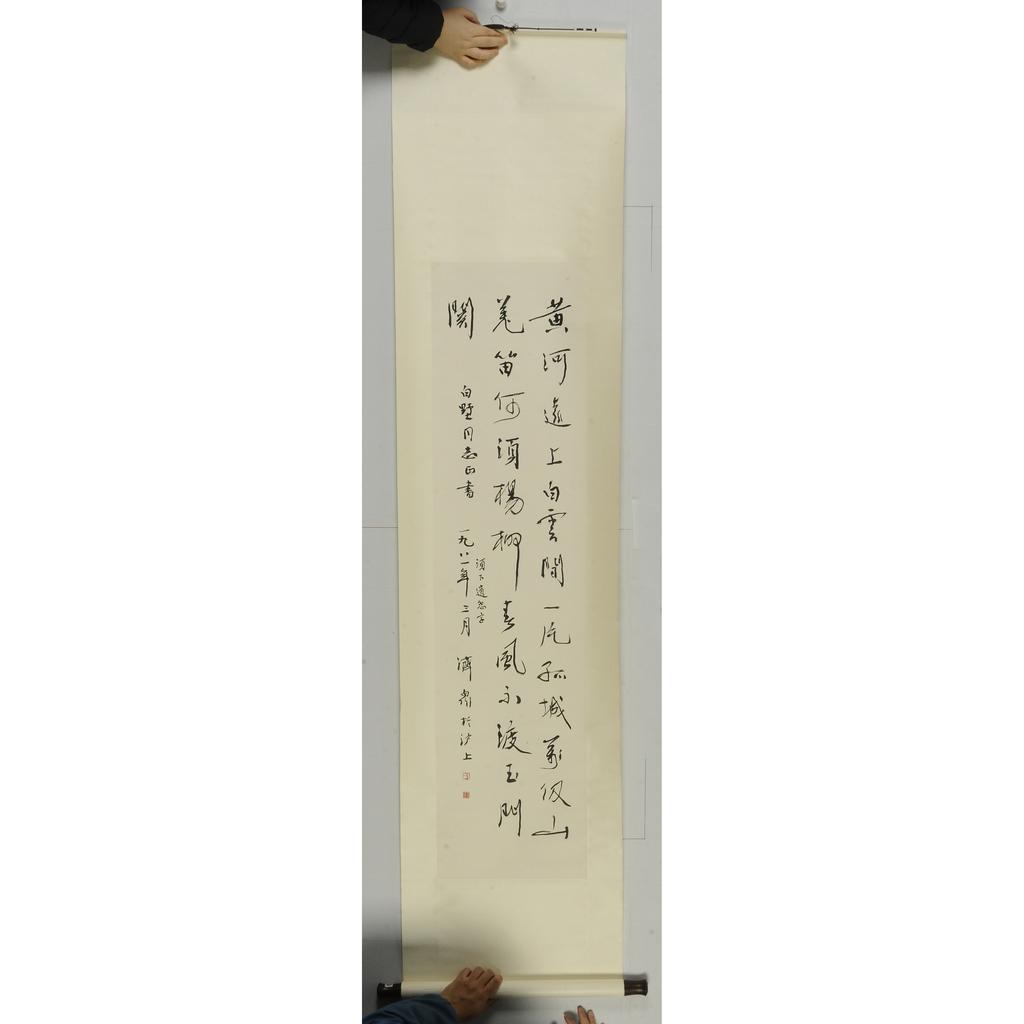 黄河遠上白雲間一片孤城萬仞山
羌笛何須楊柳春風不渡玉門
關
須下遺怨字
白墅同志正書 一九八一年三月 濟眾於沙上